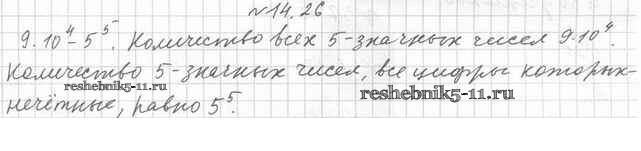 №14.26
9·10⁴-5⁵. Количество всех 5-значных чисел 9·10⁴.
Количество 5-значных чисел, все цифры которых-
нечётные, равно 5⁵.
reshebnik5-11.ru
reshebnik5-11.ru